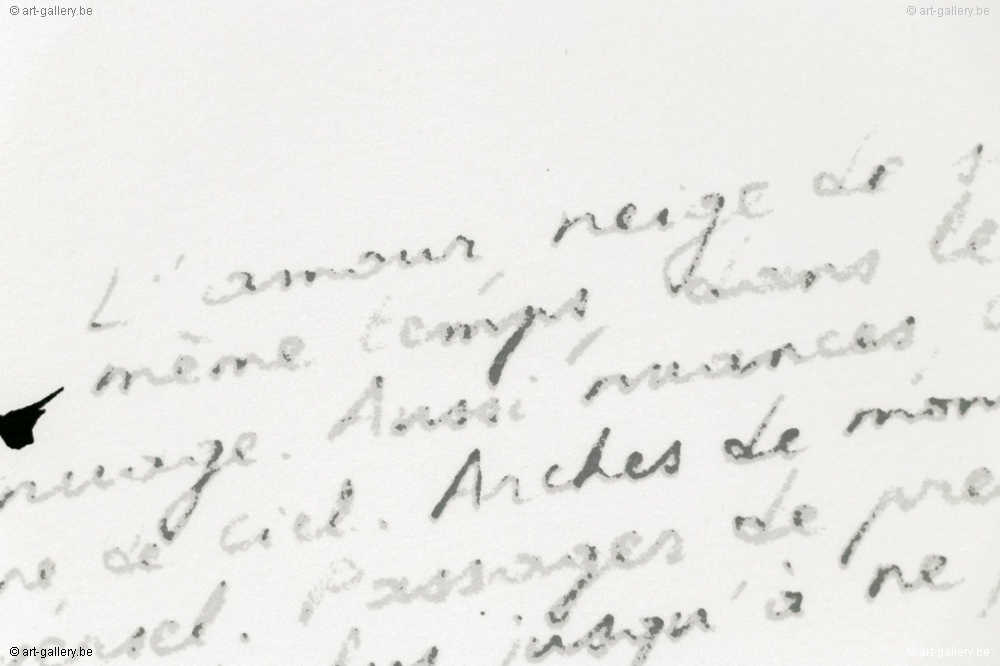 © art-gallery.be © art-gallery.be
L'amour neige de
même temps, dans le
nuage. Aussi nuances
de ciel. Arches de
Passages de
jusqu'à ne
© art-gallery.be © art-gallery.be